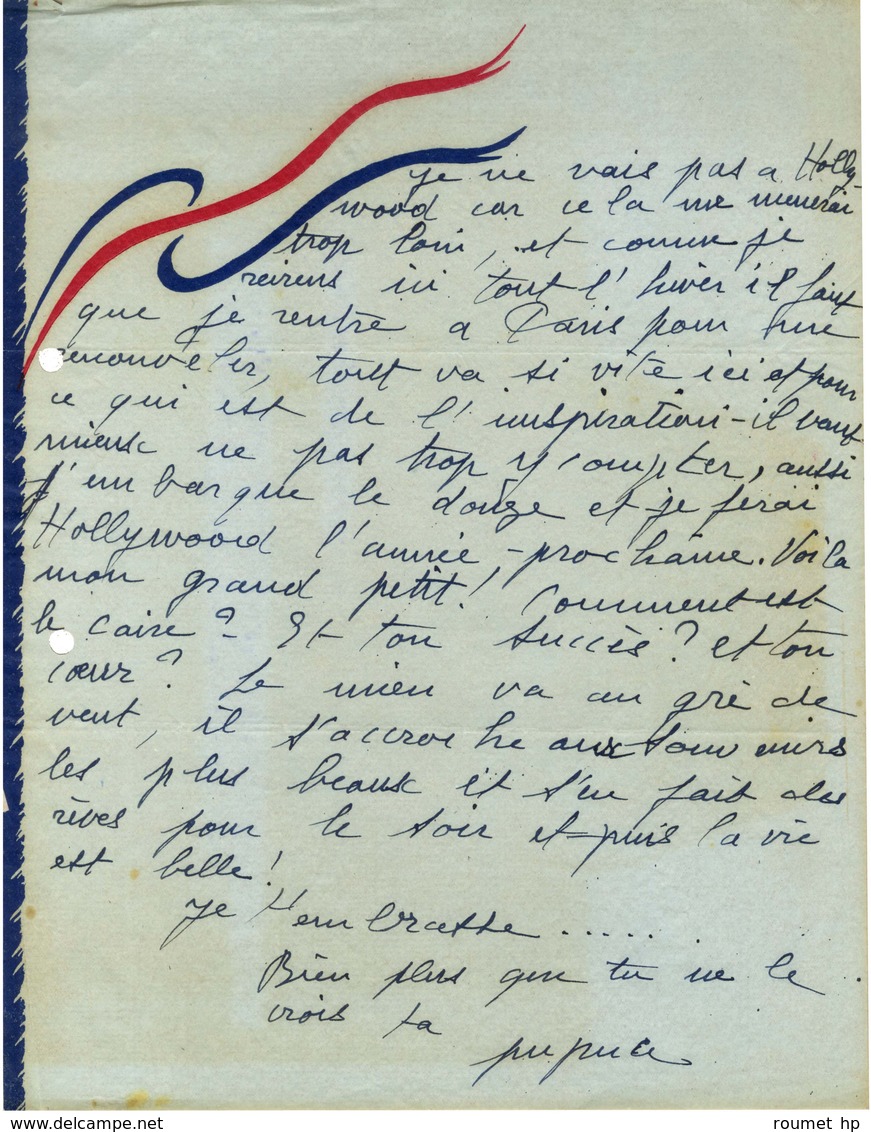 Je ne vais pas a Holly-
wood car cela me menerai
trop loin, et comme je
reviens ici tout l'hiver il faut
que je rentre a Paris pour me
renouveler, tout va si vite ici et pour
ce qui est de l'inspiration - il vaut
mieux ne pas trop y compter, aussi
j'embarque le douze et je ferai
Hollywood l'année prochaine. Voila
mon grand petit! Comment est
le Caire? Et ton succès? et ton
cœur? Le mien va au gré de
vent, il s'accroche aux souvenirs
les plus beaux et s'en fait des
rêves pour le soir et puis la vie
est belle!
Je t'embrasse .....
Bien plus que tu ne le
crois ta
pupuce
www.delcampe.net
roumet hp